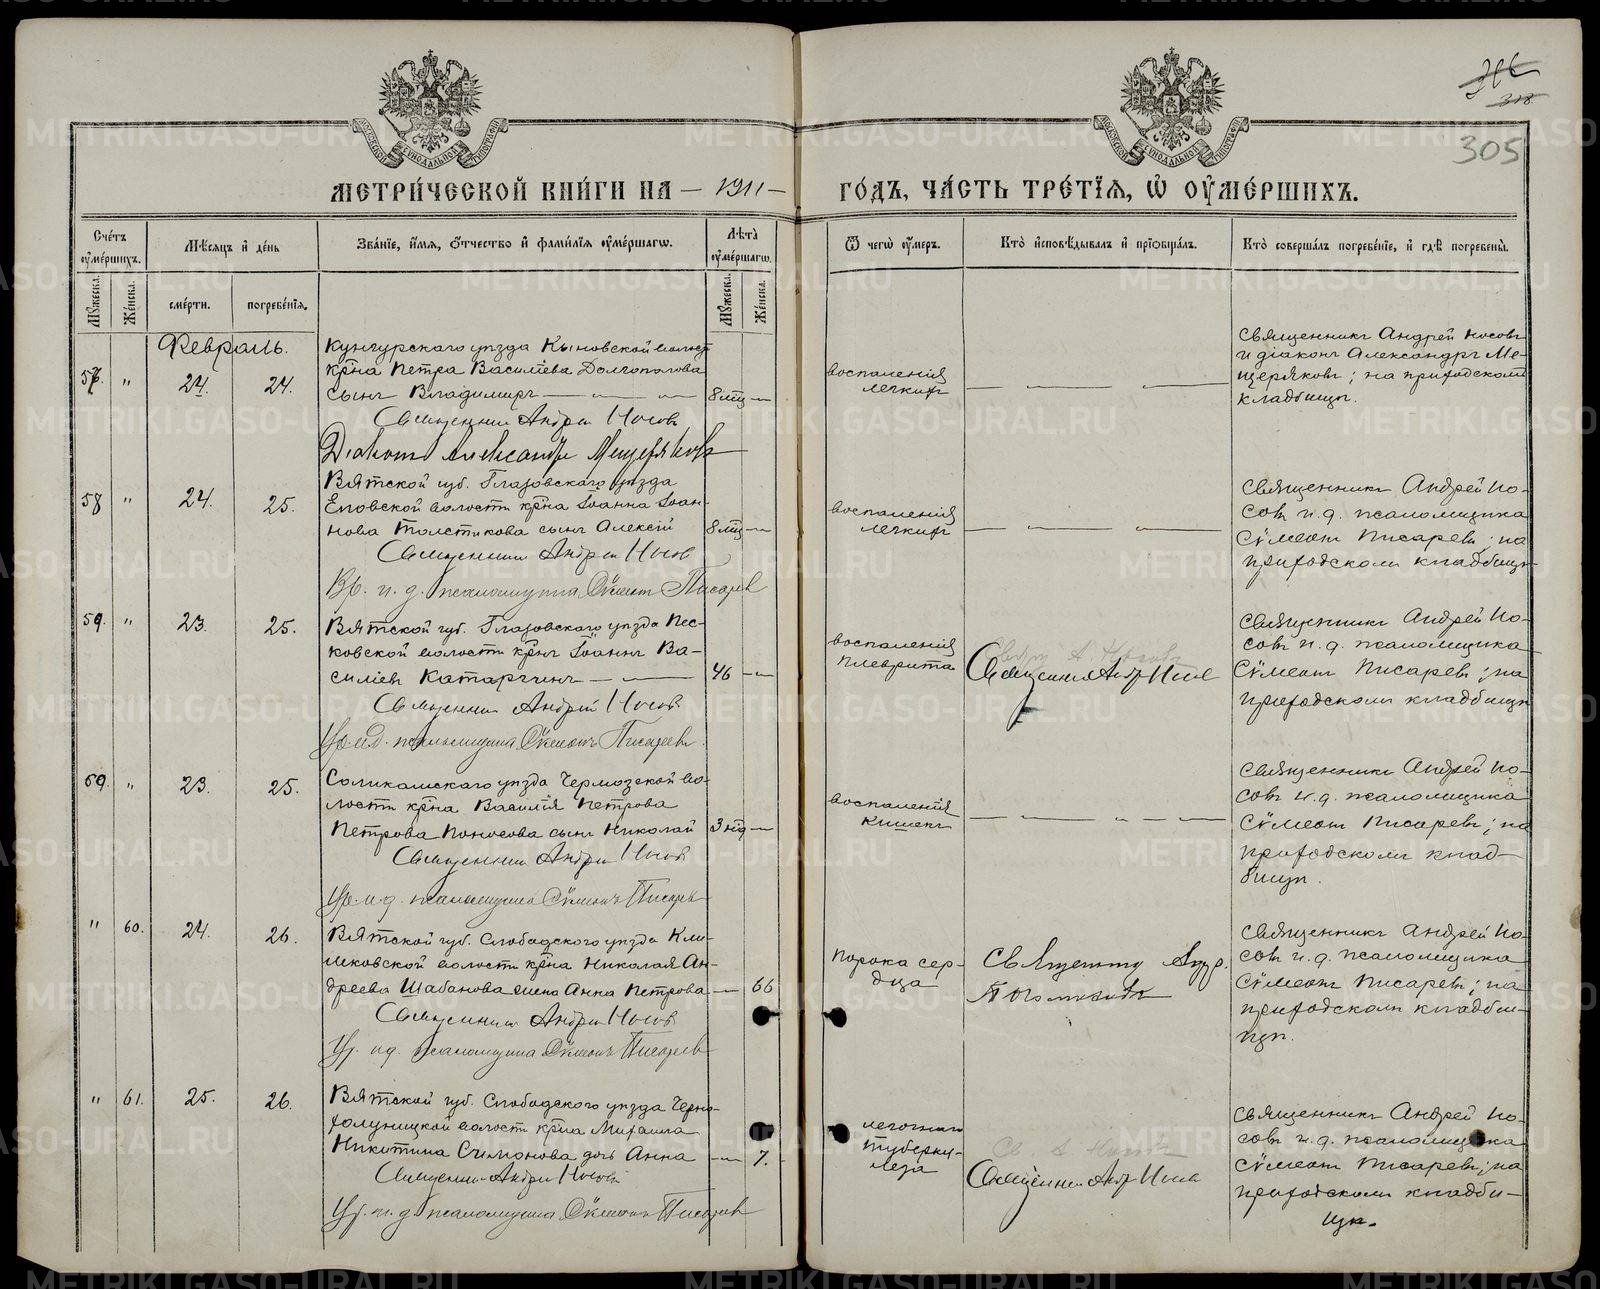 316
318
305
МЕТРИ́ЧЕСКОЙ КНИ́ГИ НА — 1911 —
ГО́ДЪ, ЧА́СТЬ ТРЕ́ТІЯ, Ѿ ОУМЕ́РШИХЪ.
Сче́тъ оуме́ршихъ.
Мѣ́сяцъ и де́нь
Зва́ніе, и́мя, о́тчество и фами́лія оуме́ршагѡ.
Лѣ́та оуме́ршагѡ.
Мꙋжеска.
Же́нска.
сме́рти.
погребе́нія.
Мꙋжеска.
Же́нска.
Ѿ чегѡ̀ оу́меръ.
Кто̀ исповѣ́дывалъ и пріѡбща́лъ.
Кто̀ соверша́лъ погребе́ніе, и гдѣ̀ погребены̀.
Февраль.
57. " 24. 24.
Кунгурскаго уѣзда Кыновской волост
кр̃на Петра Василіева Долгополова
сынъ Владиміръ
8 мц̃
Священникъ Андрей Носовъ
Діаконъ Александръ Мещеряковъ
воспаленія
легкихъ
Священникъ Андрей Носовъ
и діаконъ Александръ Ме-
щеряковъ; на приходскомъ
кладбищѣ.
58 " 24. 25.
Вятской губ. Глазовскаго уѣзда
Еловской волости кр̃на Іоанна Іоан-
нова Толстикова сынъ Алексій
8 мц̃
Священникъ Андрей Носов
Вр. и. д. псаломщика Сѵмеонъ Писарев
воспаленія
легкихъ
Священникъ Андрей Но-
совъ и. д. псаломщика
Сѵмеонъ Писаревъ на
приходскомъ кладбищѣ
59. " 23. 25.
Вятской губ. Глазовскаго уѣзда Пес-
ковской волости кр̃нъ Іоаннъ Ва-
силіевъ Катаргинъ
46
Священник Андрей Носовъ
и.д. псаломщика Сѵмеонъ Писаревъ.
воспаленія
плеврита
Священникъ Андр Носов
Священникъ Андрей Но-
совъ и. д. псаломщика
Сѵмеонъ Писаревъ; на
приходскомъ кладбищѣ
60. " 23. 25.
Соликамскаго уѣзда Чермозской во-
лости кр̃на Василія Петрова
Петрова Поносова сынъ Николай
3 нд̃
Священник Андрей Носов
и. д. псаломщика Сѵмеонъ Писаревъ
воспаленія
кишекъ
Священникъ Андрей Но-
совъ и. д. псаломщика
Сѵмеонъ Писаревъ; на
приходскомъ клад-
бищѣ.
" 60. 24. 26.
Вятской губ. Слободского уѣзда Кли-
мковской волости кр̃на Николая Ан-
дреева Шабанова жена Анна Петрова
66
Священник Андрей Носов
и.д. псаломщика Сѵмеонъ Писаревъ
Порока сер-
дца
Священник Андр.
Священникъ Андрей Но-
совъ и. д. псаломщика
Сѵмеонъ Писаревъ; на
приходскомъ кладби-
щѣ.
" 61. 25. 26.
Вятской губ. Слободского уѣзда Черно-
холуницкой волости кр̃на Михаила
Никитина Симонова дочь Анна
7.
Священник Андрей Носовъ
и. д. псаломщика Сѵмеонъ Писарев
легочнаго
туберку-
леза
Св. А Носовъ
Священник Андр Носов
Священникъ Андрей Но-
совъ и. д. псаломщика
Сѵмеонъ Писаревъ; на
приходскомъ кладби-
щѣ.
METRIKI.GASO-URAL.RU